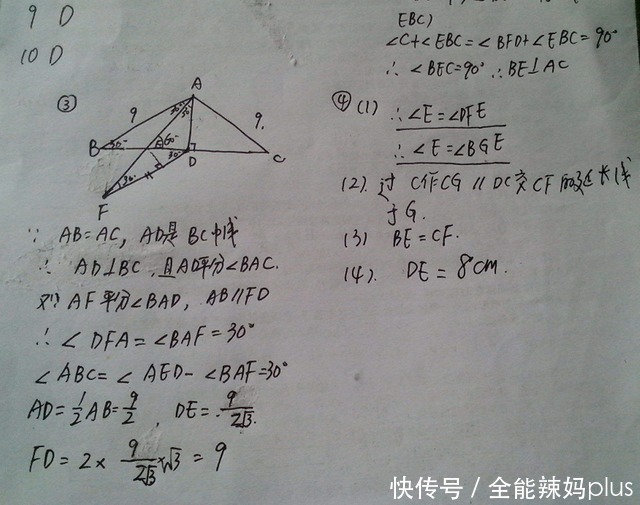 9 D
10 D
EBC)
∠C+∠EBC=∠BFD+∠EBC=90°
∴ ∠BEC=90° ∴BE⊥AC
③
A
9
9.
B
30°
30°
30°
60°
30°
D
C
30°
F
∵ AB=AC, AD是BC中线
∴ AD⊥BC, 且AD平分∠BAC.
又∵ AF平分∠BAD, AB//FD
∴ ∠DFA=∠BAF=30°
∠ABC=∠AED-∠BAF=30°
AD=1/2AB=9/2, DE=9/2√3.
FD=2×9/2√3×√3=9
④ (1) ∴∠E=∠DFE
∴∠E=∠BGE
(2). 过C作CG//DC交CF的延长线
于G.
(3) BE=CF.
(4). DE=8cm.
快传号 / 全能辣妈plus